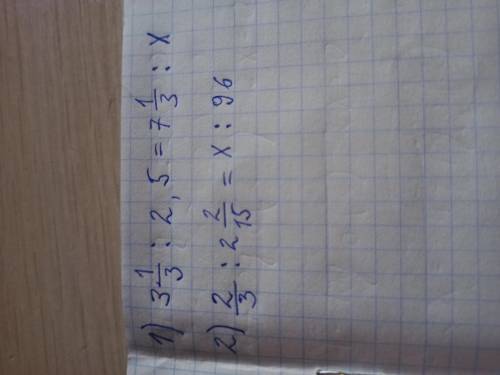 1) 3 1/3 : 2,5 = 7 1/3 : x
2) 2/3 : 2 2/15 = x : 96